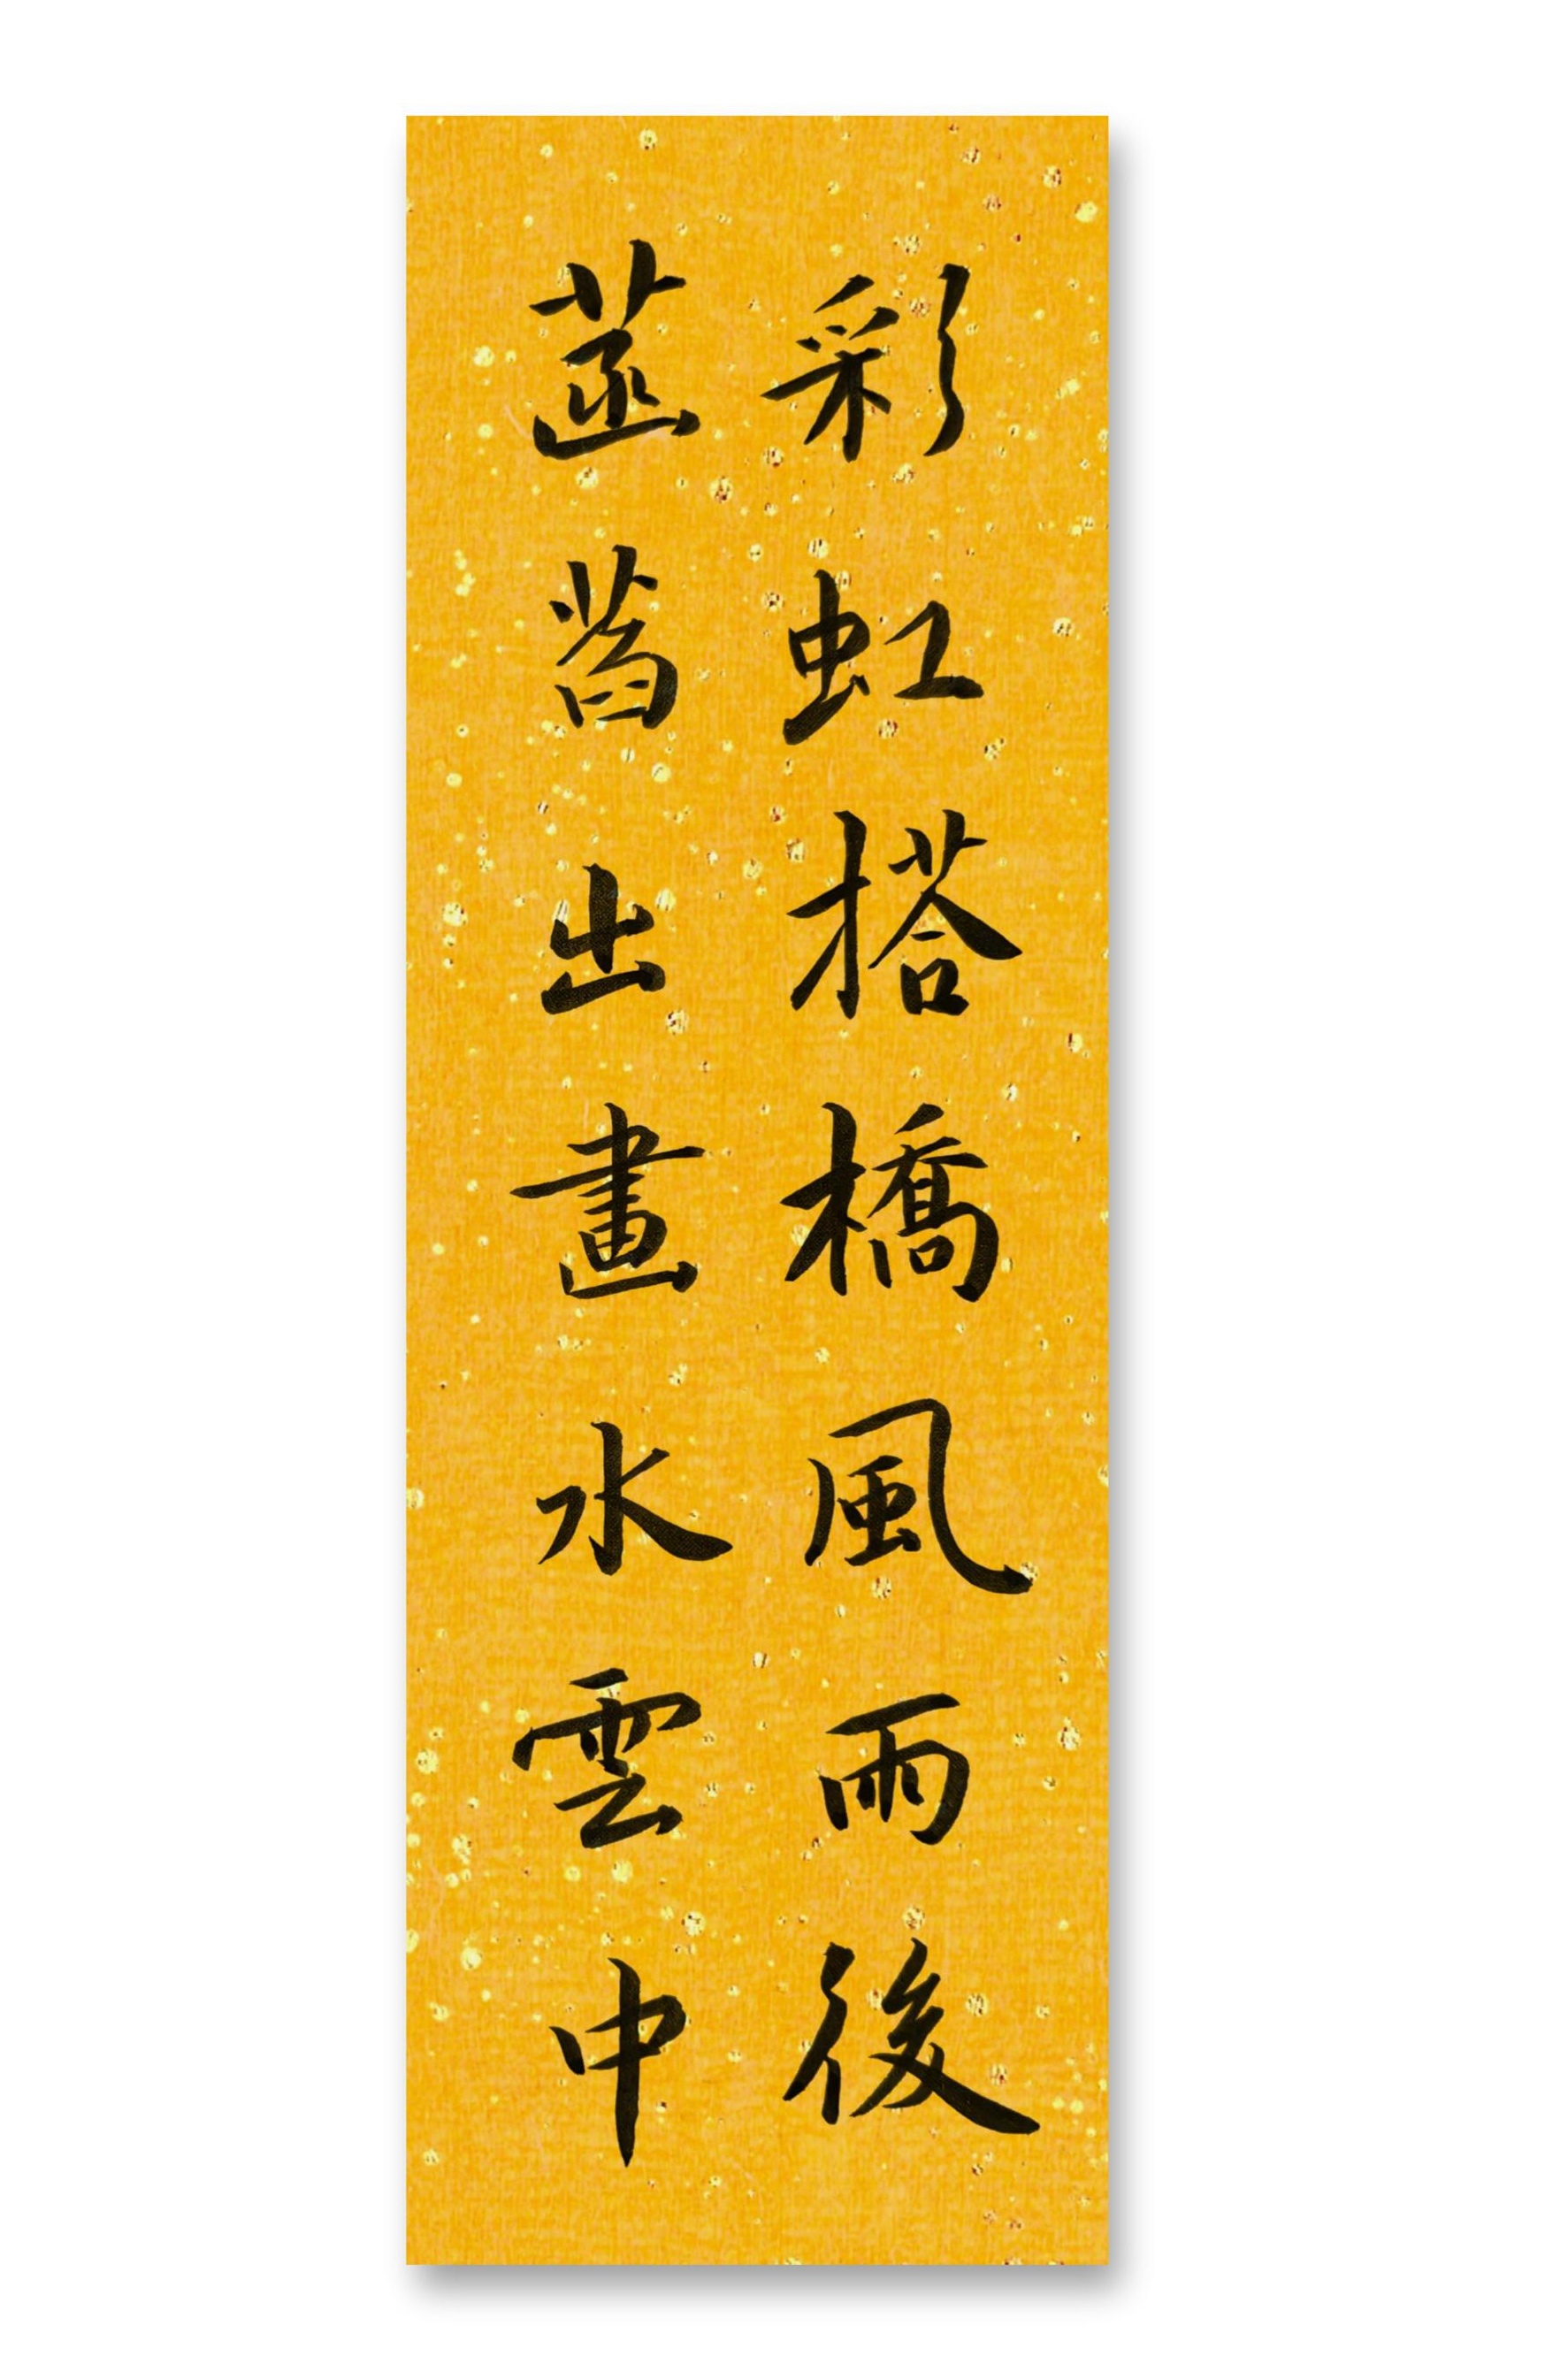 彩虹搭橋風雨後
菡萏出畫水雲中